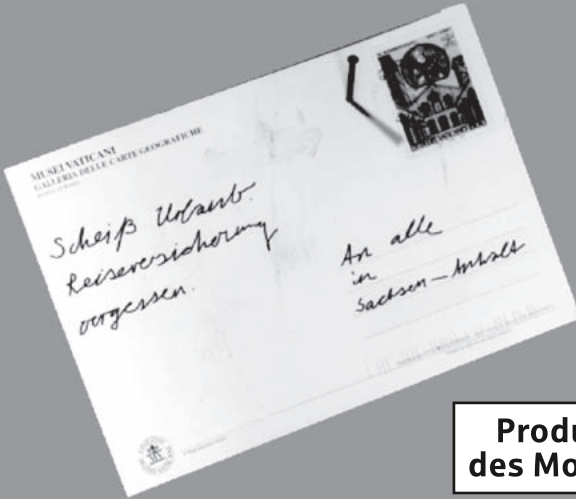 MUSEI VATICANI
GALLERIA DELLE CARTE GEOGRAFICHE
Scheiß Urlaub.
Reiseversicherung
vergessen.
An alle
in
Sachsen-Anhalt
Produ
des Mo